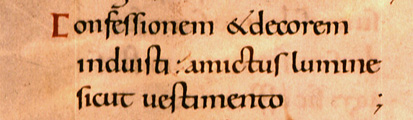 Confessionem &decorem
induisti : amictus lumine
sicut uestimento ;